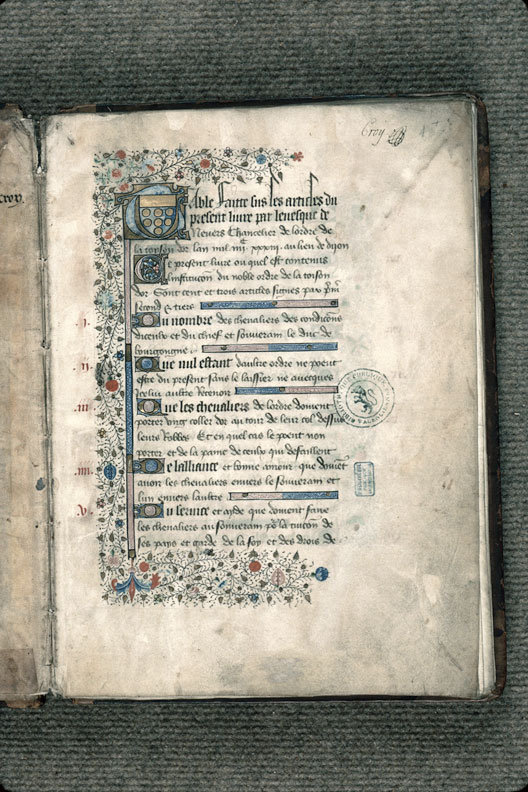 Croy
Croy.
Table faitte sus les articles du
present livre par levesque de
Nevers Chancelier de lordre de
la toison dor lan mil iiijc xxxiij au lieu de dijon
Ce present livre ou quel est contenus
linstitucion du noble ordre de la toison
dor Sont cent et trois articles signes par prim
second & tiers
.i. Du nombre des chevaliers des condicions
diceulx et du chief et souverain le duc de
bourgongne
ij. Que nul estant dautre ordre ne poent
estre du present sans le laissier ne avecques
icelui autre Retenir
.iij. Que les chevaliers de lordre doivent
porter ung collier dor au tour de leur col dessus
leurs Robbes Et en quel cas le poent non
porter et de la paine de ceulx qui deffaillent
.iiij. De lalliance et bonne amour que doivent
avoir les chevaliers envers le souverain et
lun envers lautre
.v. Du service et ayde que doivent faire
les chevaliers au souverain pour la tuicion de
ses pays et garde de la foy et des drois de